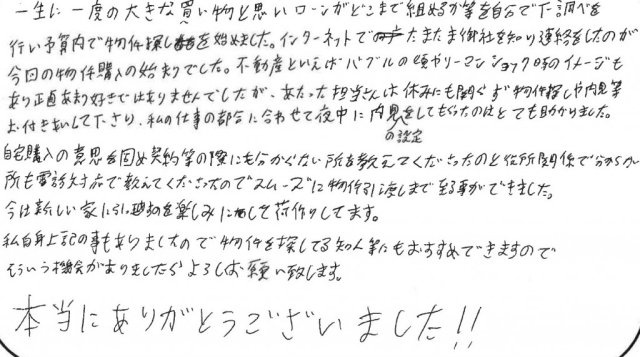 一生に一度の大きな買い物と思いローンがどこまで組めるか等を自分で下調べを
行い予算内で物件探しを始めました。インターネットでたまたま御社を知り連絡をしたのが
今回の物件購入の始まりでした。不動産といえばバブルの時やリーマンショック時のイメージも
あり正直あまり好きではありませんでしたが、あたった担当さんは休みにも関らず物件探しや内見等
お付き合いして下さり、私の仕事の都合に合わせて夜中に内見の設定をしてもらったのはとても助かりました。
自宅購入の意思を固め契約等の際にも分からない所を教えてくださったのと役所関係で分からない
所も電話対応で教えてくださったのでスムーズに物件引き渡しまで至る事ができました。
今は新しい家に引越を楽しみにして荷作りしてます。
私自身上記の事もありましたので物件を探してる知人等にもおすすめできますので
そういう機会がありましたらよろしくお願い致します。
本当にありがとうございました!!